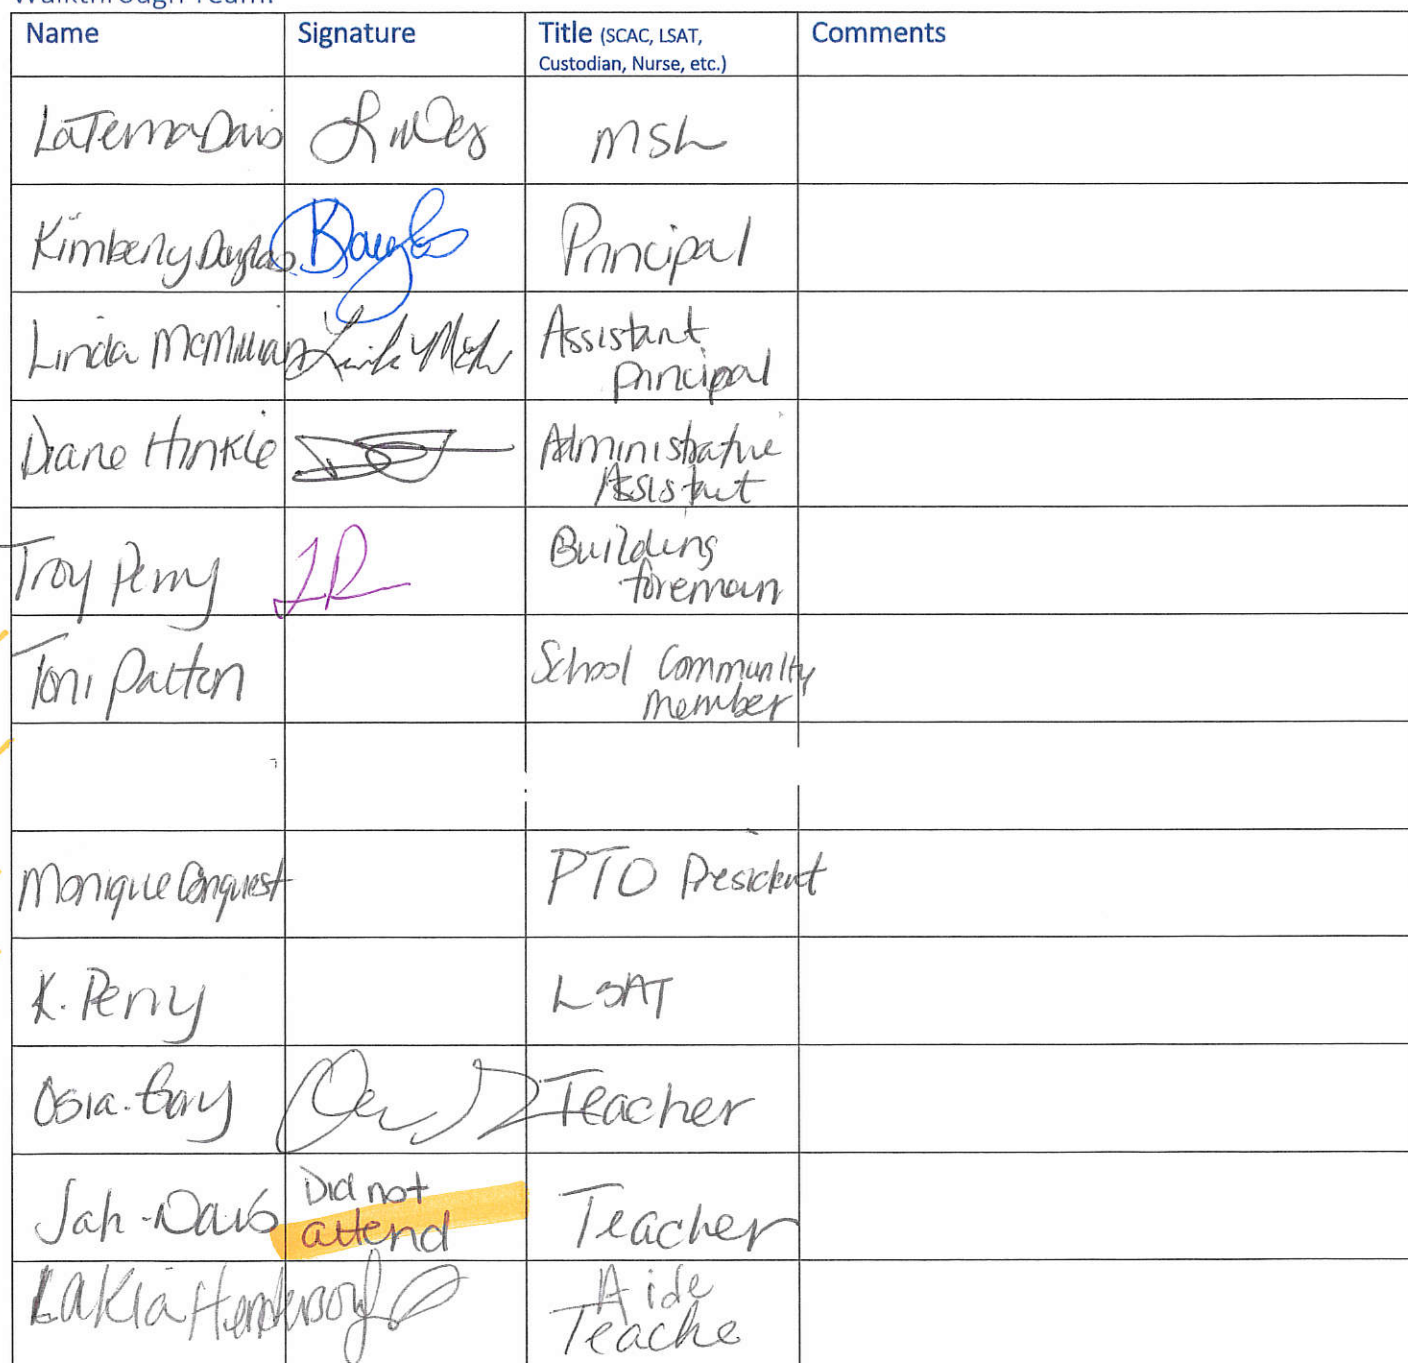 Walkthrough Team:
Name Signature Title (SCAC, LSAT, Custodian, Nurse, etc.) Comments
LaTerna Davis MSh
Kimberly Douglas Principal
Linda McMillian Assistant principal
Diane Hinkle Administrative Assistant
Troy Perry Building foreman
Toni Patton School Community member
Monique Conquest PTO President
K. Perry LSAT
Osia. Gay Teacher
Jah-Davis Did not attend Teacher
LaKia Henderson Aide Teache